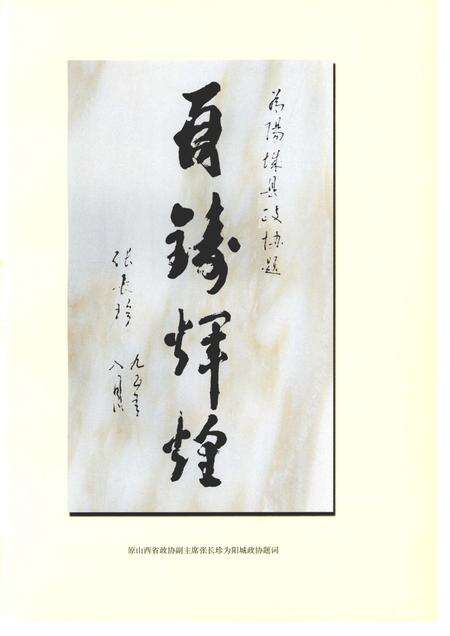 为阳城县政协题
再铸辉煌
张长珍
九五年
八月
原山西省政协副主席张长珍为阳城政协题词